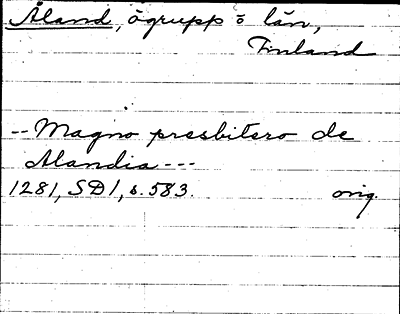 Åland, ögrupp o län,
Finland
-- Magno presbitero de
Alandia ---
1281, SD1, s. 583. orig